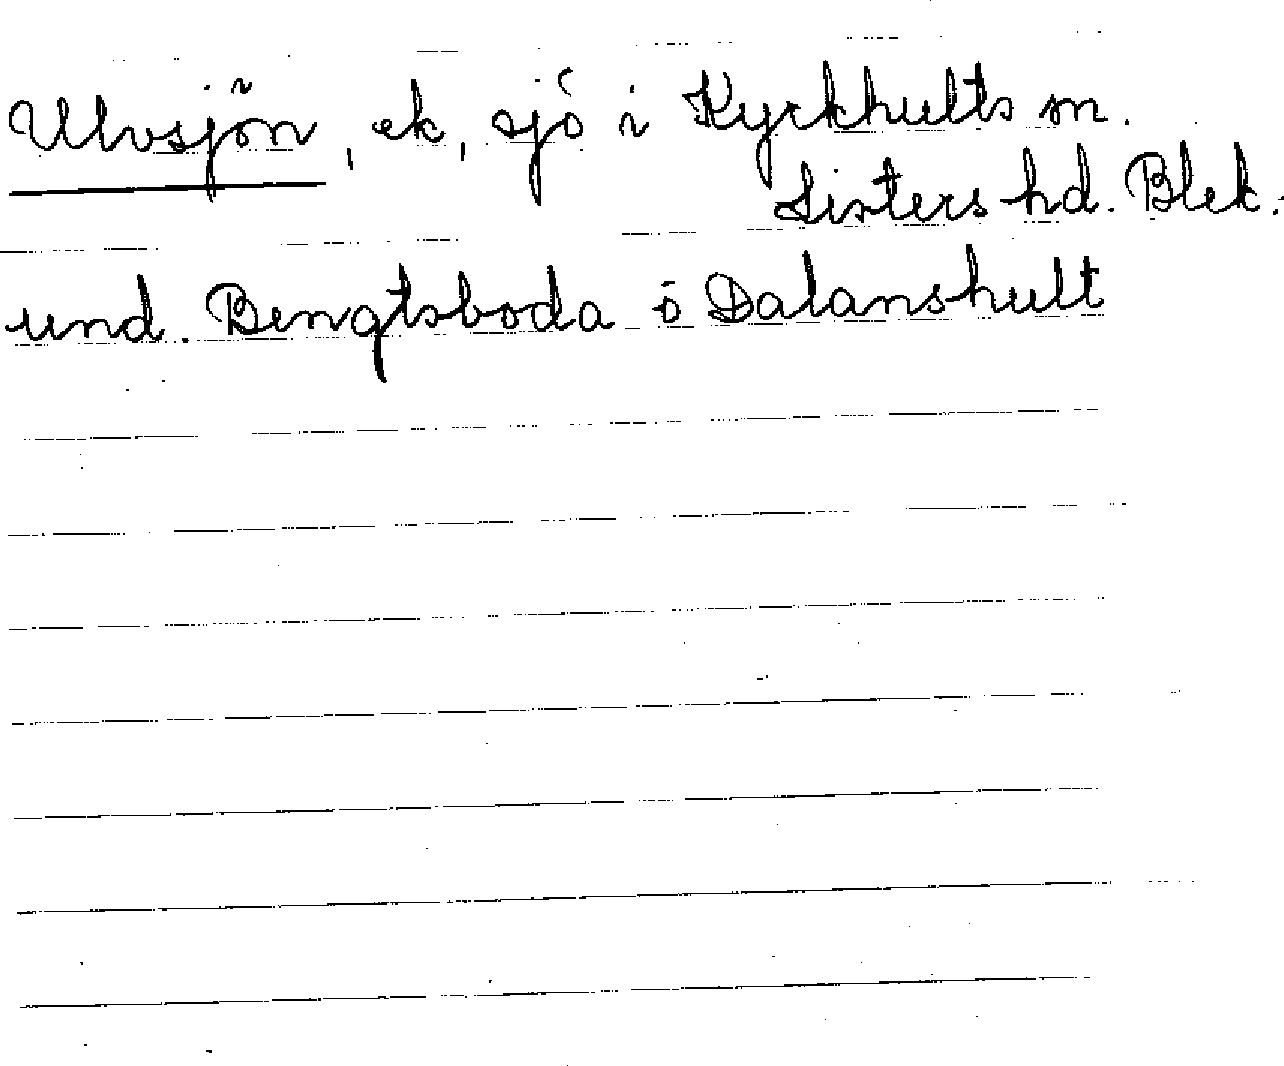 Ulvsjön, ek, sjö i Kyrkhults sn.
Listers hd. Blek.
und. Bengtsboda o Dalanshult